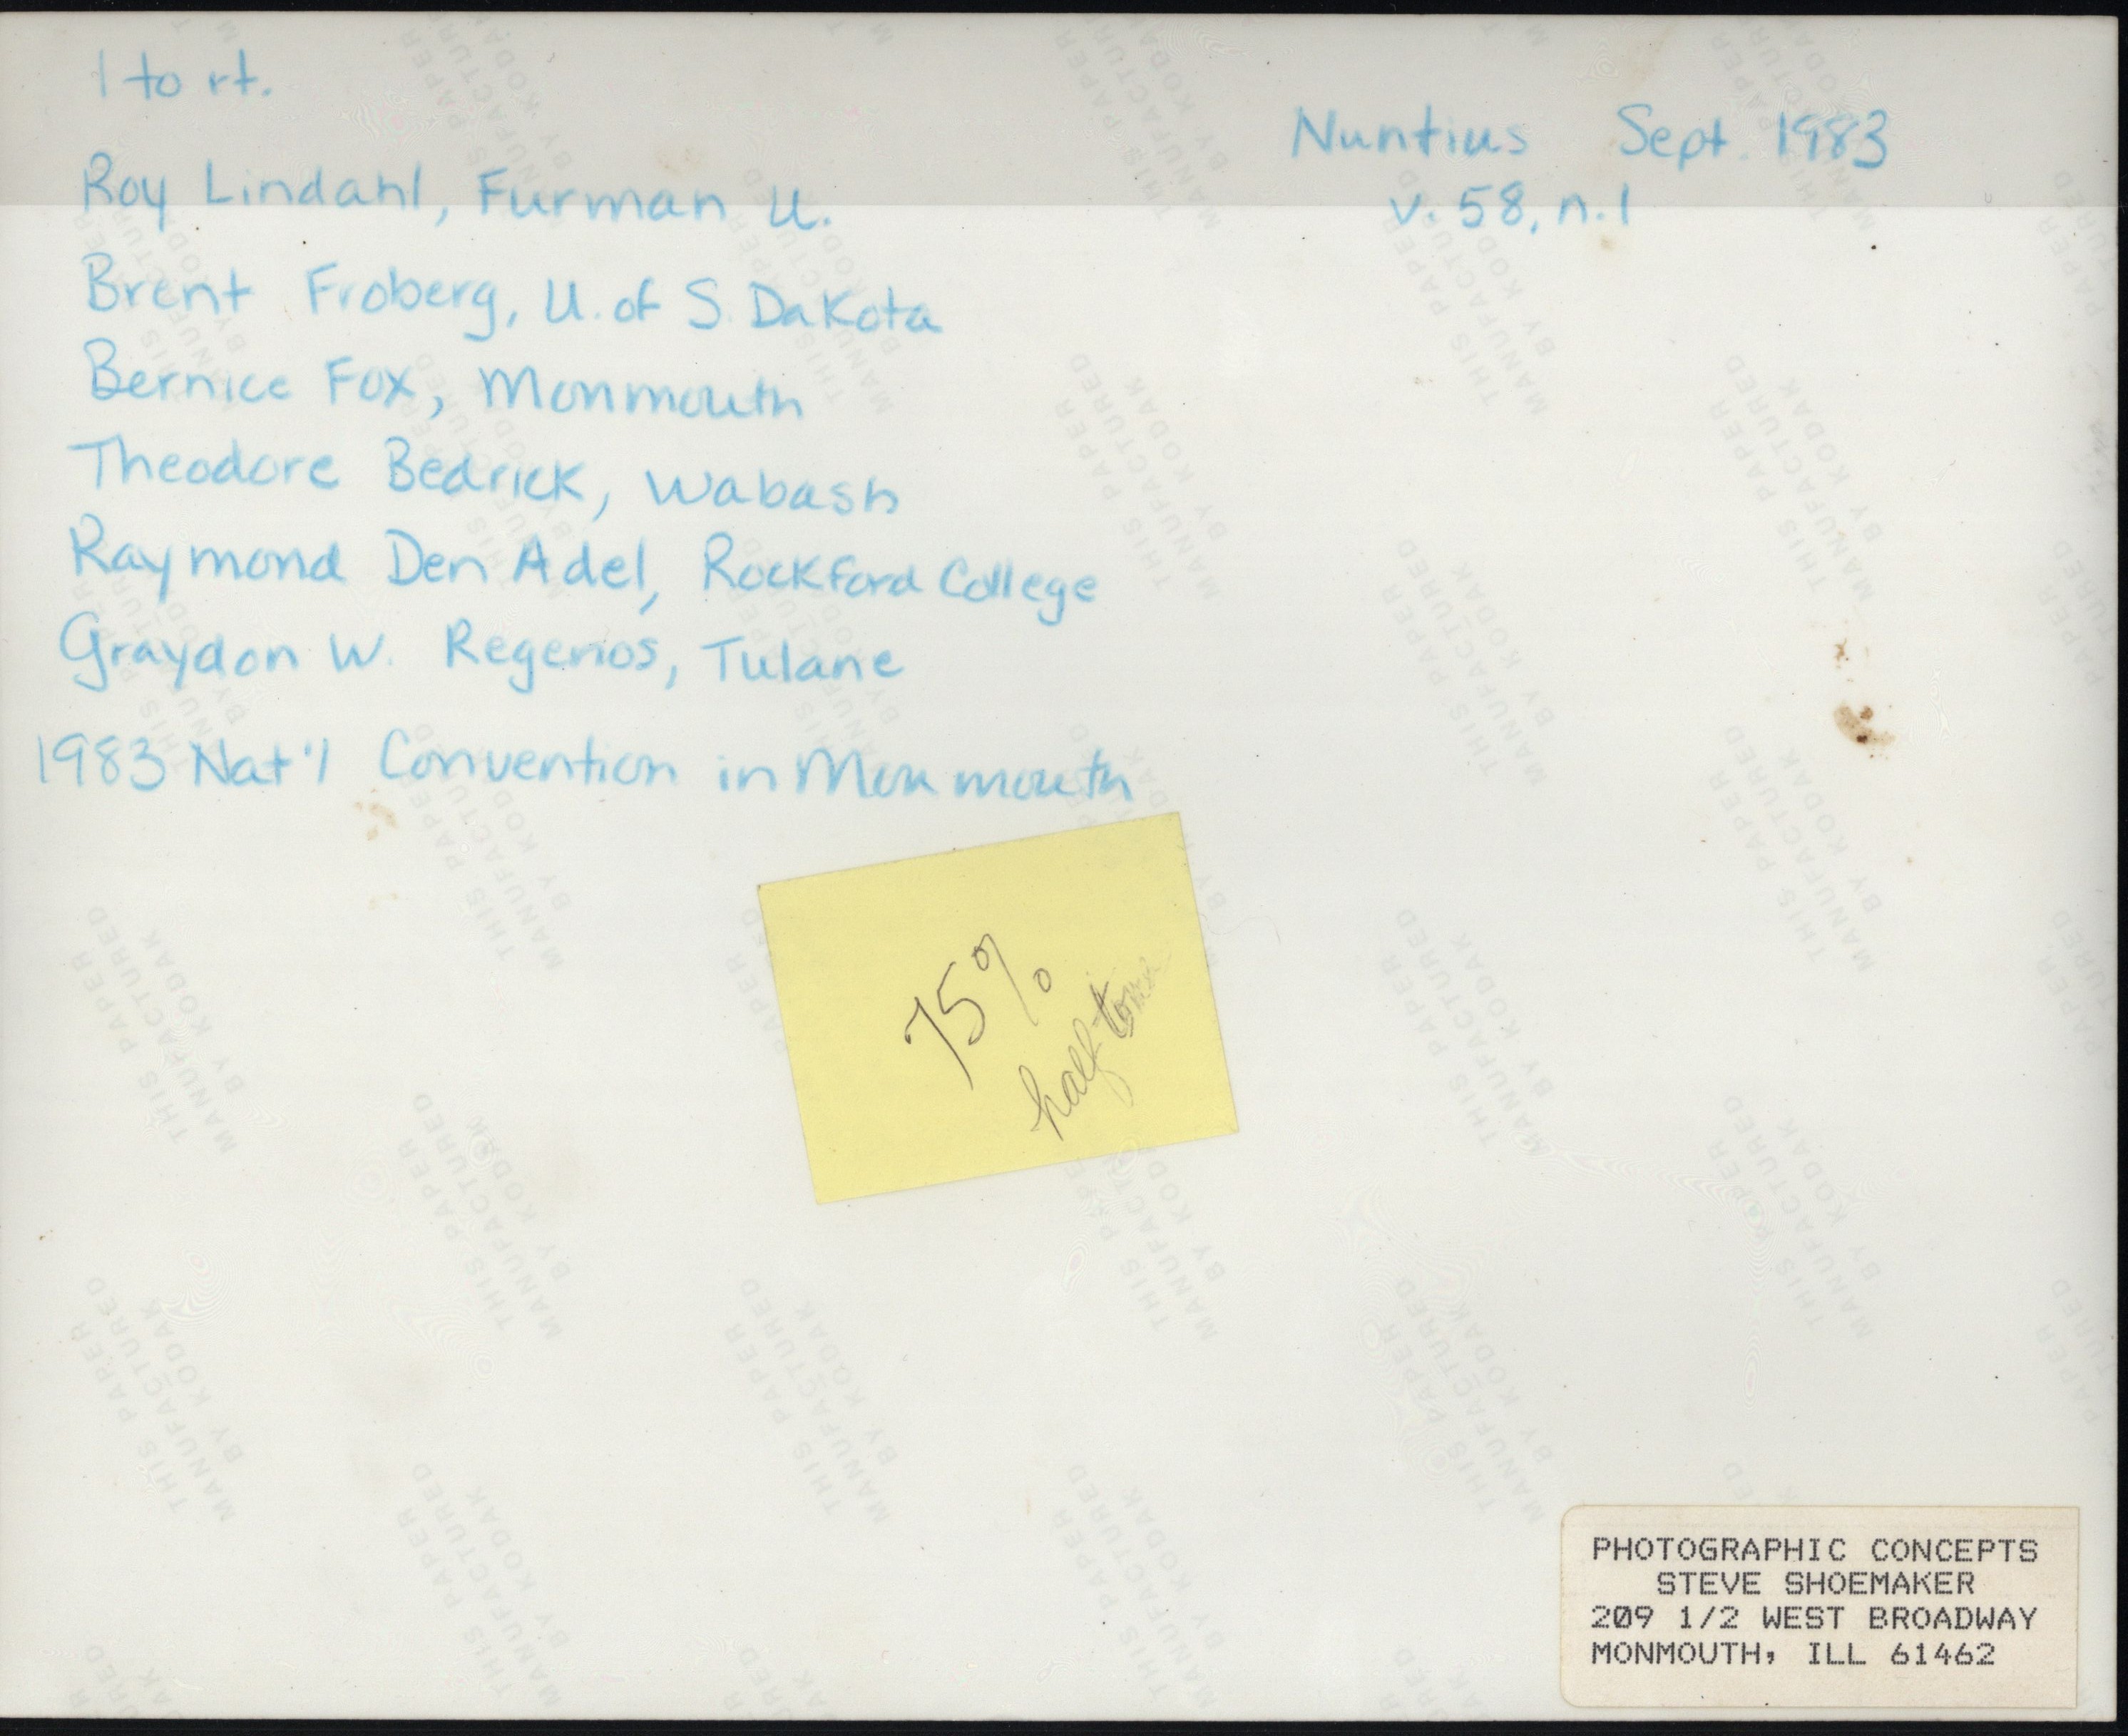 l to rt.
Nuntius Sept. 1983
v. 58, n. 1
Roy Lindahl, Furman U.
Brent Froberg, U. of S. Dakota
Bernice Fox, Monmouth
Theodore Bedrick, Wabash
Raymond Den Adel, Rockford College
Graydon W. Regenos, Tulane
1983 Nat'l Convention in Monmouth
75%
half tone
PHOTOGRAPHIC CONCEPTS
STEVE SHOEMAKER
209 1/2 WEST BROADWAY
MONMOUTH, ILL 61462
THIS PAPER
MANUFACTURED
BY KODAK